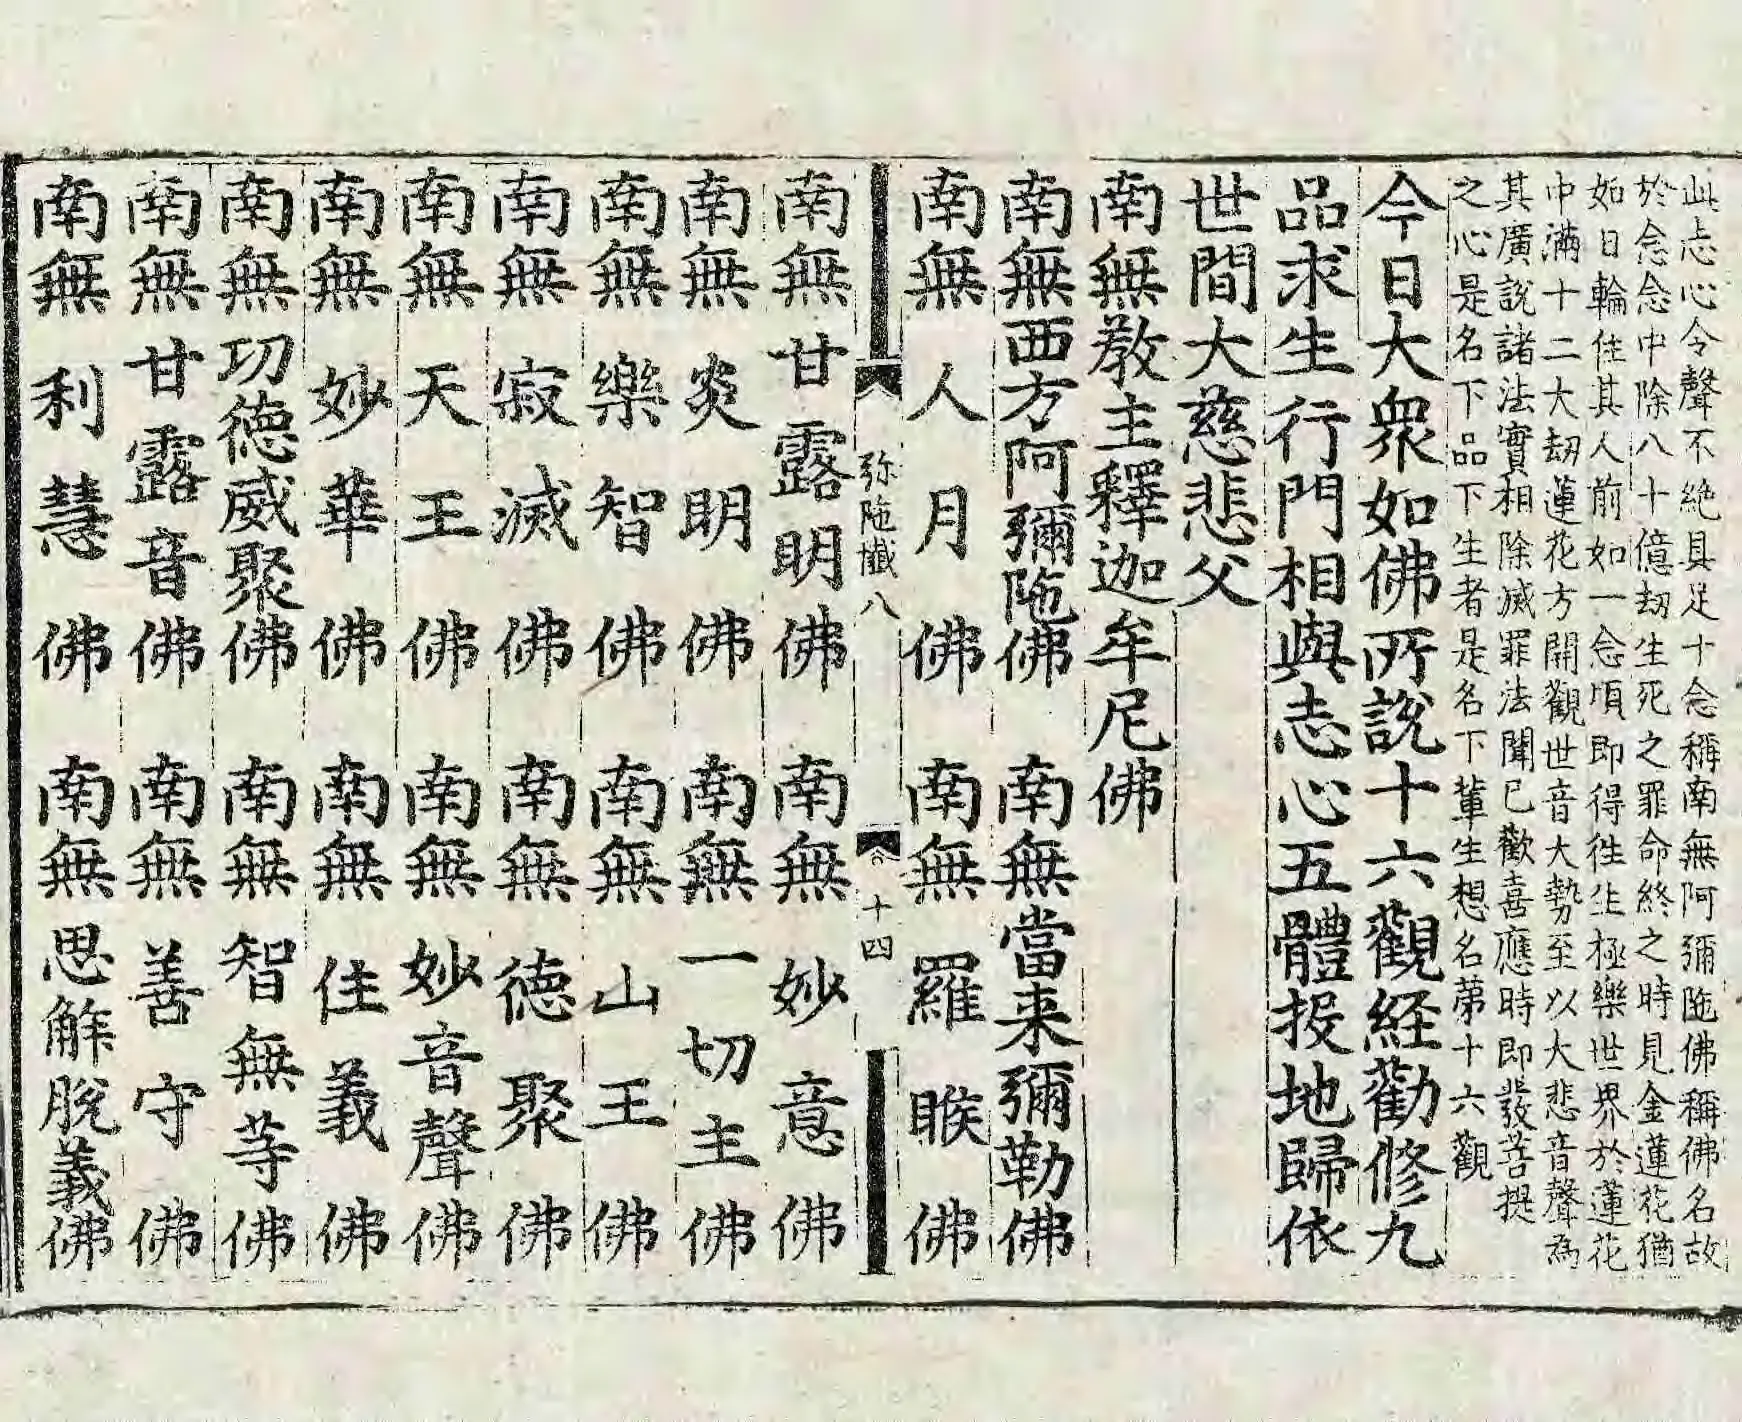 此志心令聲不絶具足十念稱南無阿彌陁佛稱佛名故
於念念中除八十億劫生死之罪命終之時見金蓮花猶
如日輪住其人前如一念頃即得徃生極樂世界於蓮花
中滿十二大劫蓮花方開觀世音大勢至以大悲音聲為
其廣說諸法實相除滅罪法聞已歡喜應時即發菩提
之心是名下品下生者是名下輩生想名第十六觀
今日大衆如佛所說十六觀経勸修九
品求生行門相與志心五體投地歸依
世間大慈悲父
南無教主釋迦牟尼佛
南無西方阿彌陁佛 南無當来彌勒佛
南無人月佛 南無羅睺佛
弥陁懺八 十四
南無甘露明佛 南無妙意佛
南無炎明佛 南無一切主佛
南無樂智佛 南無山王佛
南無寂滅佛 南無德聚佛
南無天王佛 南無妙音聲佛
南無妙華佛 南無住義佛
南無功德威聚佛 南無智無等佛
南無甘露音佛 南無善守佛
南無利慧佛 南無思解脫義佛